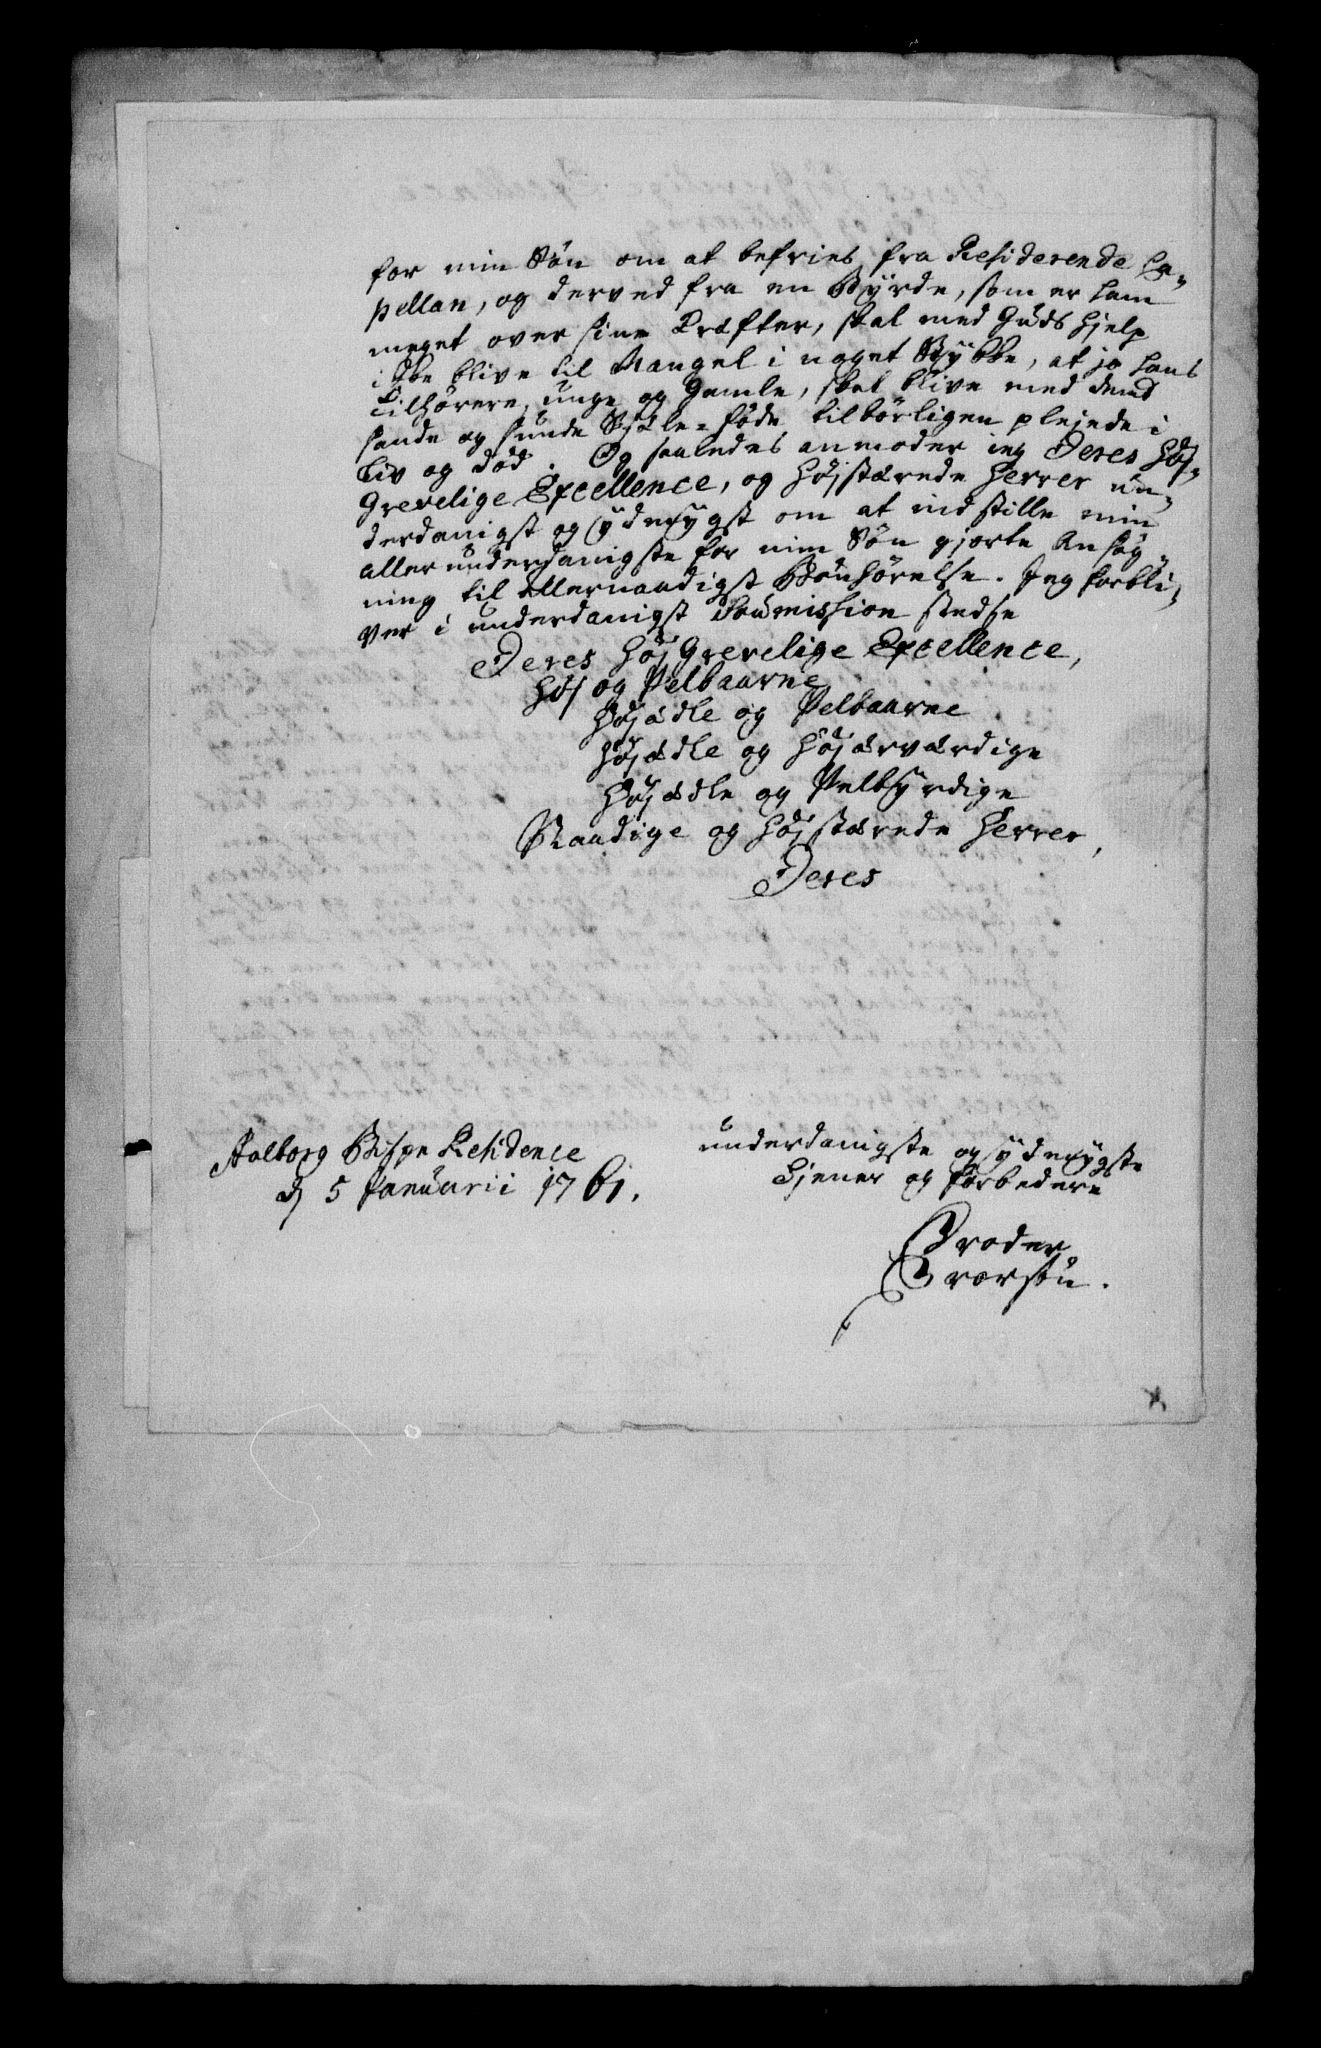 for min Søn om at befries fra Residerende Ca-
pellan, og derved fra en Byrde, som er ham
meget over sine Kræfter, skal med Guds Hjelp
ikke blive til Mangel i noget Stykke, at jo hans
Tilhørere, unge og Gamle, skal blive med dend
sande og sunde Siæle-føde tilbørligen plejede i
Liv og død. Og saaledes anmoder ieg Deres Høj-
Grevelige Excellence, og Højstærede Herrer un-
derdanigst og ydmygst om at indstille min
allerunderdanigste for min Søn gjorte Ansøg-
ning til allernaadigst Bønhørelse. Jeg forbli-
ver i underdanigst Soumission stedse
Deres Høj Grevelige Excellence,
Høj og Velbaarne
Højædle og Velbaarne
Højædle og Højærværdige
Højædle og Velbyrdige
Naadige og Højstærede Herrer,
Deres
Aalborg Bispe Residence
d 5 Januarii 1761.
underdanigste og ydmygste
Tjener og forbedere
Broder
Brorson.